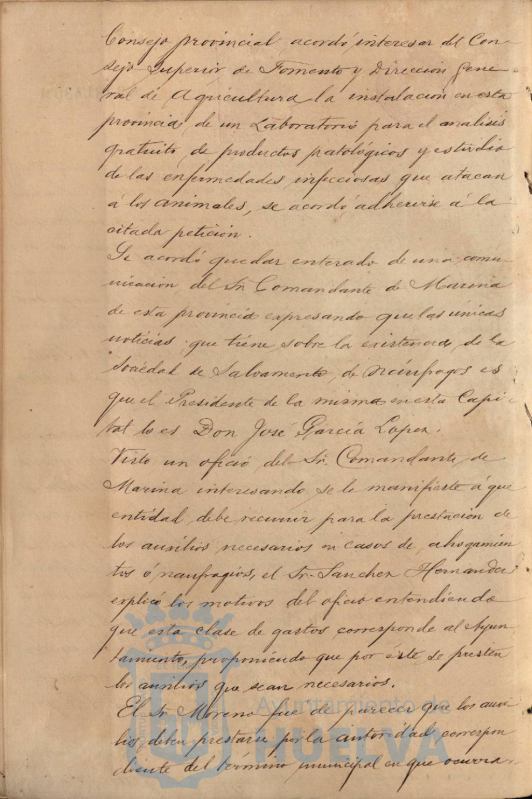 Consejo provincial acordó interesar del Con-
sejo Superior de Fomento y Dirección Gene-
ral de Agricultura la instalación en esta
provincia de un Laboratorio para el análisis
gratuito de productos patológicos y estudio
de las enfermedades infecciosas que atacan
á los animales, se acordó adherirse á la
citada petición.
Se acordó quedar enterado de una comu-
nicación del Sr. Comandante de Marina
de esta provincia expresando que las únicas
noticias que tiene sobre la existencia de la
Sociedad de Salvamento de Náufragos es
que el Presidente de la misma en esta Capi-
tal lo es Don José García Lopez.
Visto un oficio del Sr. Comandante de
Marina interesando se le manifieste á que
entidad debe recurrir para la prestación de
los auxilios necesarios en casos de ahogamien-
tos ó naufragios, el Sr. Sanchez Hernandez
explicó los motivos del oficio entendiendo
que esta clase de gastos corresponde al Ayun-
tamiento, proponiendo que por éste se presten
los auxilios que sean necesarios.
El Sr. Moreno fue de parecer que los auxi-
lios deben prestarse por la autoridad correspon
diente del término municipal en que ocurra
Ayuntamiento de
HUELVA